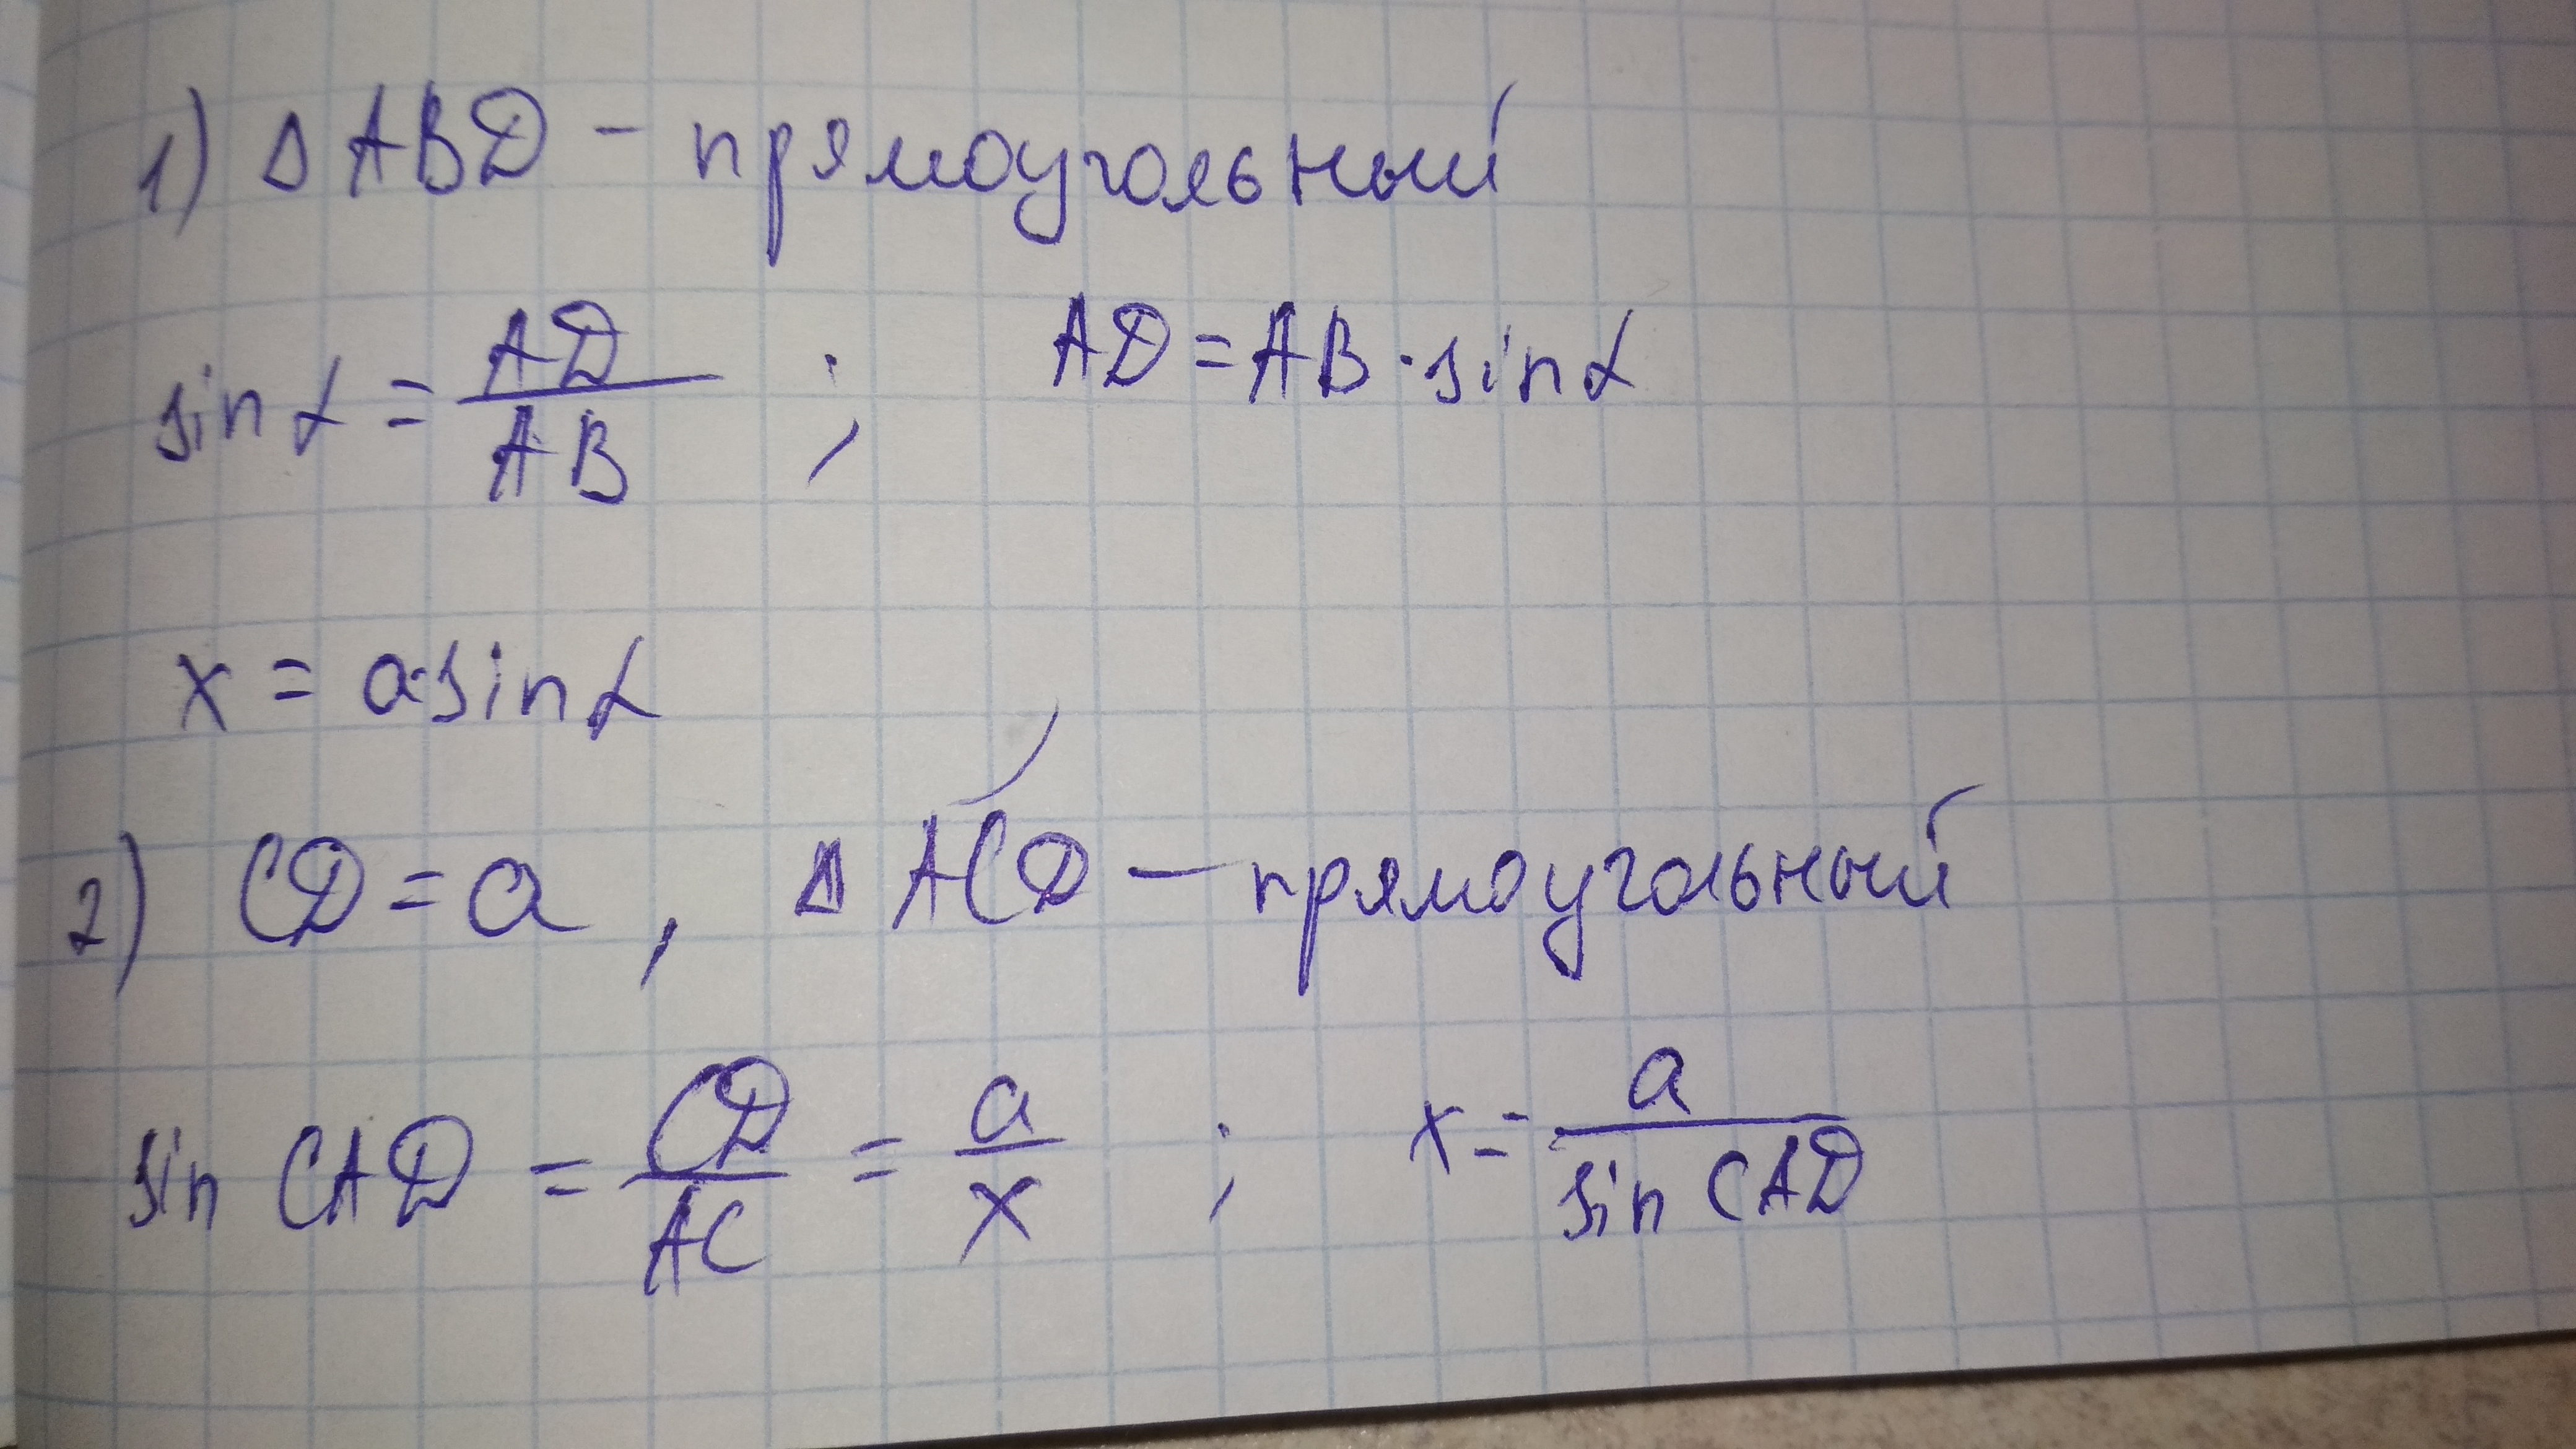 1) Δ ABD - прямоугольный
sin α = AD/AB ; AD = AB · sin α
x = a·sin α
2) CD = a , Δ ACD - прямоугольный
sin CAD = CD/AC = a/x ; x = a/sin CAD